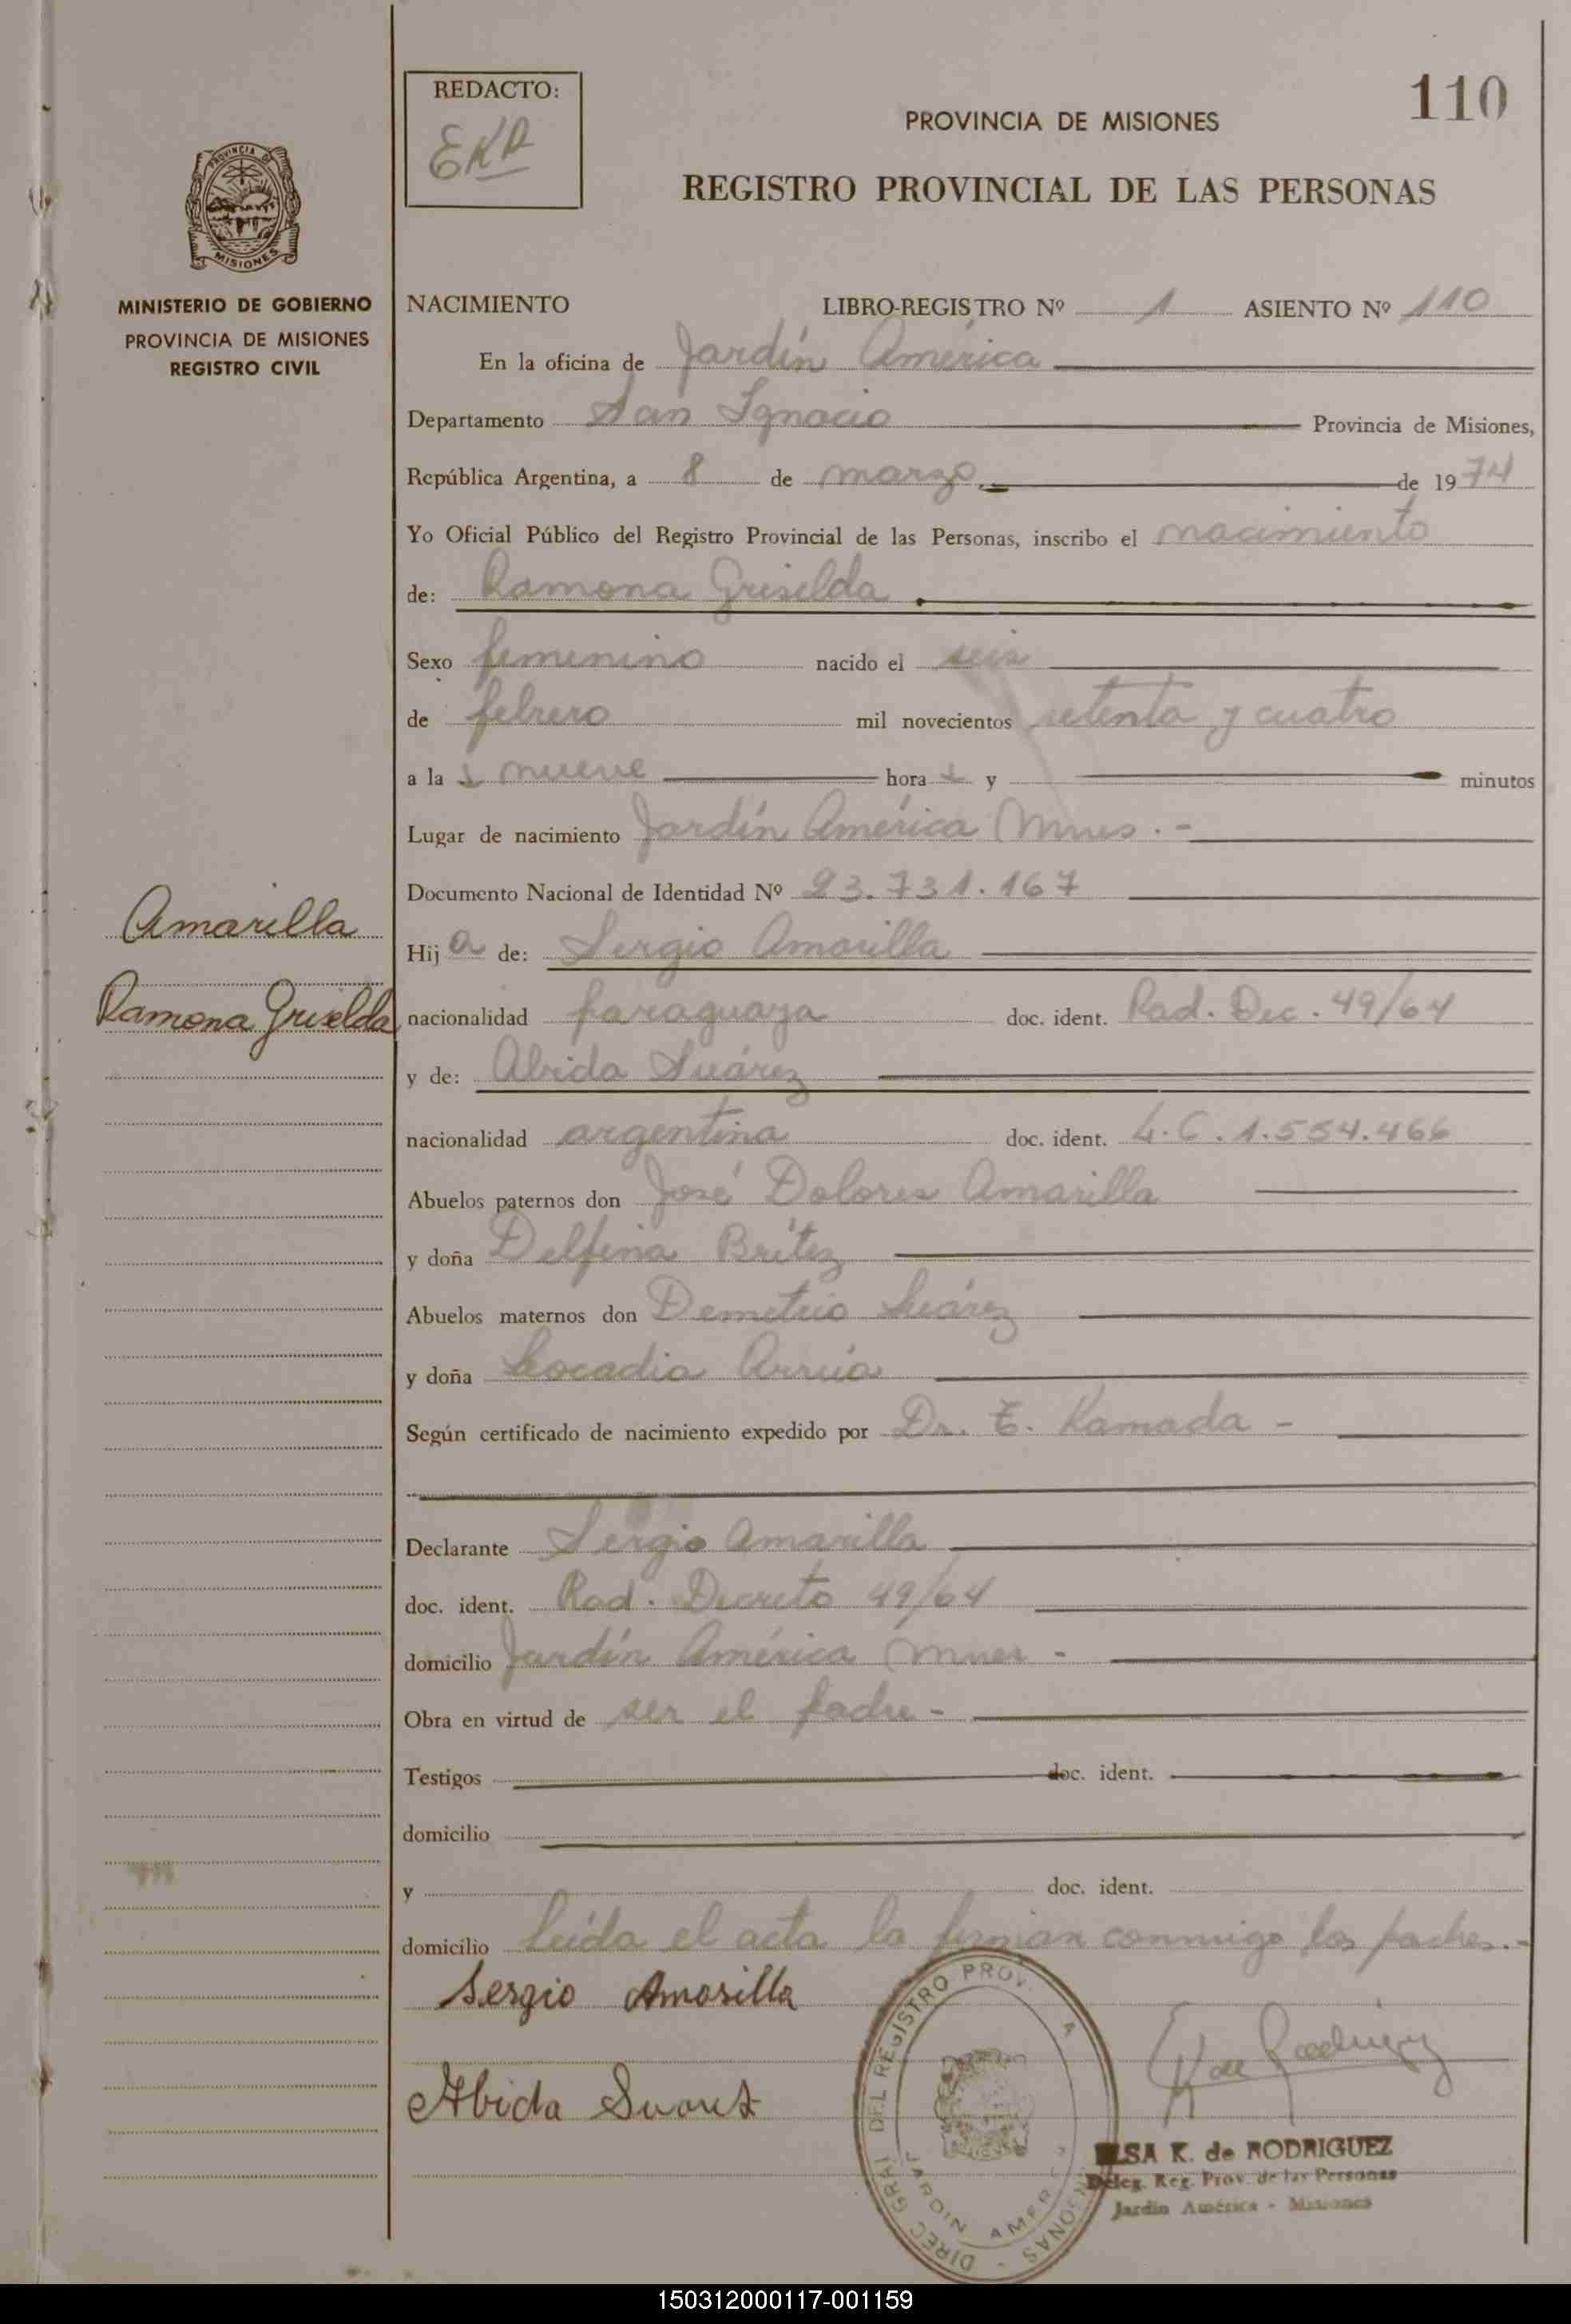 110
REDACTO:
EKR
PROVINCIA DE MISIONES
REGISTRO PROVINCIAL DE LAS PERSONAS
PROVINCIA DE
MISIONES
MINISTERIO DE GOBIERNO
PROVINCIA DE MISIONES
REGISTRO CIVIL
NACIMIENTO LIBRO-REGISTRO Nº 1 ASIENTO Nº 110
En la oficina de Jardín América
Departamento San Ignacio Provincia de Misiones,
República Argentina, a 8 de marzo.- de 1974
Yo Oficial Público del Registro Provincial de las Personas, inscribo el nacimiento
de: Ramona Griselda
Sexo femenino nacido el seis
de febrero mil novecientos setenta y cuatro
a las nueve horas y minutos
Lugar de nacimiento Jardín América Mnes.-
Documento Nacional de Identidad Nº 23.731.167
Amarilla
Ramona Griselda
Hija de: Sergio Amarilla
nacionalidad paraguaya doc. ident. Rad. Dec. 49/64
y de: Abida Suárez
nacionalidad argentina doc. ident. L.C. 1.554.466
Abuelos paternos don José Dolores Amarilla
y doña Delfina Brítez
Abuelos maternos don Demetrio Suárez
y doña Leocadia Arrúa
Según certificado de nacimiento expedido por Dr. E. Kamada -
Declarante Sergio Amarilla
doc. ident. Rad. Decreto 49/64
domicilio Jardín América Mnes -
Obra en virtud de ser el padre -
Testigos doc. ident.
domicilio
y doc. ident.
domicilio Leída el acta la firman conmigo los padres.-
Sergio Amarilla
Abida Suarez
DIREC GRAL DEL REGISTRO PROV.
JARDIN AMERICA
ELSA K. de RODRIGUEZ
Deleg. Reg. Prov. de las Personas
Jardín América - Misiones
150312000117-001159